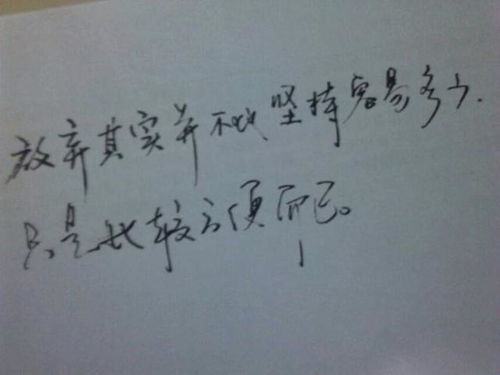 放弃其实并不比坚持容易多少.
只是比较方便而已。